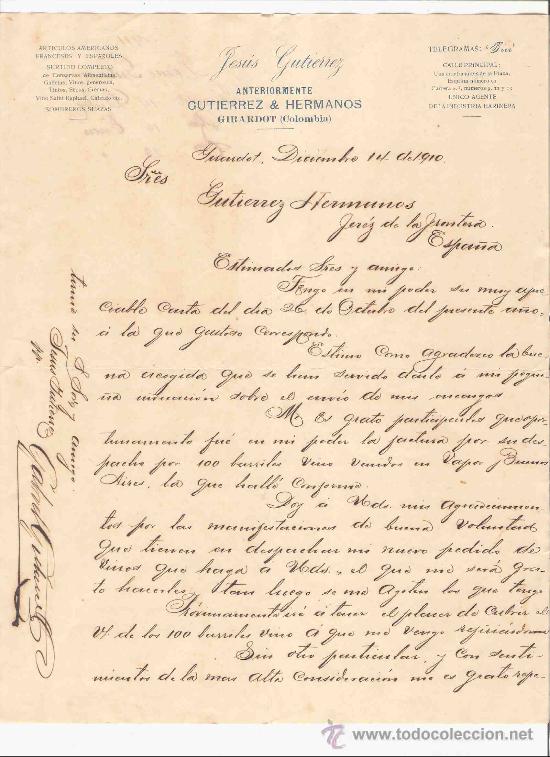 ARTICULOS AMERICANOS
FRANCESES Y ESPAÑOLES
SURTIDO COMPLETO
de Conservas Alimenticias,
Galletas, Vinos generosos,
Tintos, Secos, Cremas,
Vino Saint-Raphael, Cidra, etc.
SOMBREROS SUAZAS
Jesús Gutiérrez
ANTERIORMENTE
GUTIERREZ & HERMANOS
GIRARDOT (Colombia)
TELEGRAMAS:
CALLE PRINCIPAL:
Una cuadra antes de la Plaza,
Esquina número
Carrera números 11 y
UNICO AGENTE
DE LA INDUSTRIA HARINERA
Girardot, Diciembre 14 de 1910.
Sres
Gutierrez Hermanos
Jeréz de la Frontera.
España
Estimados Sres y amigo:
Tengo en mi poder su muy apre
ciable carta del dia 26 de Octubre del presente año
á la que gustoso correspondo.
Estimo como agradezco la bue
na acogida que se han servido darle á mi peque
ña insinuación sobre el envio de mis encargos
Me Es grato participarles que opor
tunamente fué en mi poder la factura por su des
pacho por 100 barriles vino venidos en Vapor Buenos
Aires, la que hallé conforme.
Doy á Uds. mis agradecimien
tos por las manifestaciones de buena voluntad
que tienen en despachar mi nuevo pedido de
vinos que haga á Uds., el que me será gra
to hacerles, tan luego se me agoten los que tengo
Próximamente iré á tener el placer de cubrir el
V/. de los 100 barriles vino á que me vengo refiriéndome
Sin otro particular, y con senti
mientos de la mas alta consideración me es grato repe-
tirme su S. S. y amigo.
todocoleccion
www.todocoleccion.net